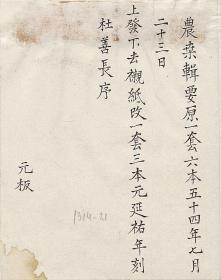 農桑輯要原一套六本五十四年七月
二十三日
上發下去襯紙改一套三本元延祐年刻
杜善長序
元板
1314-21